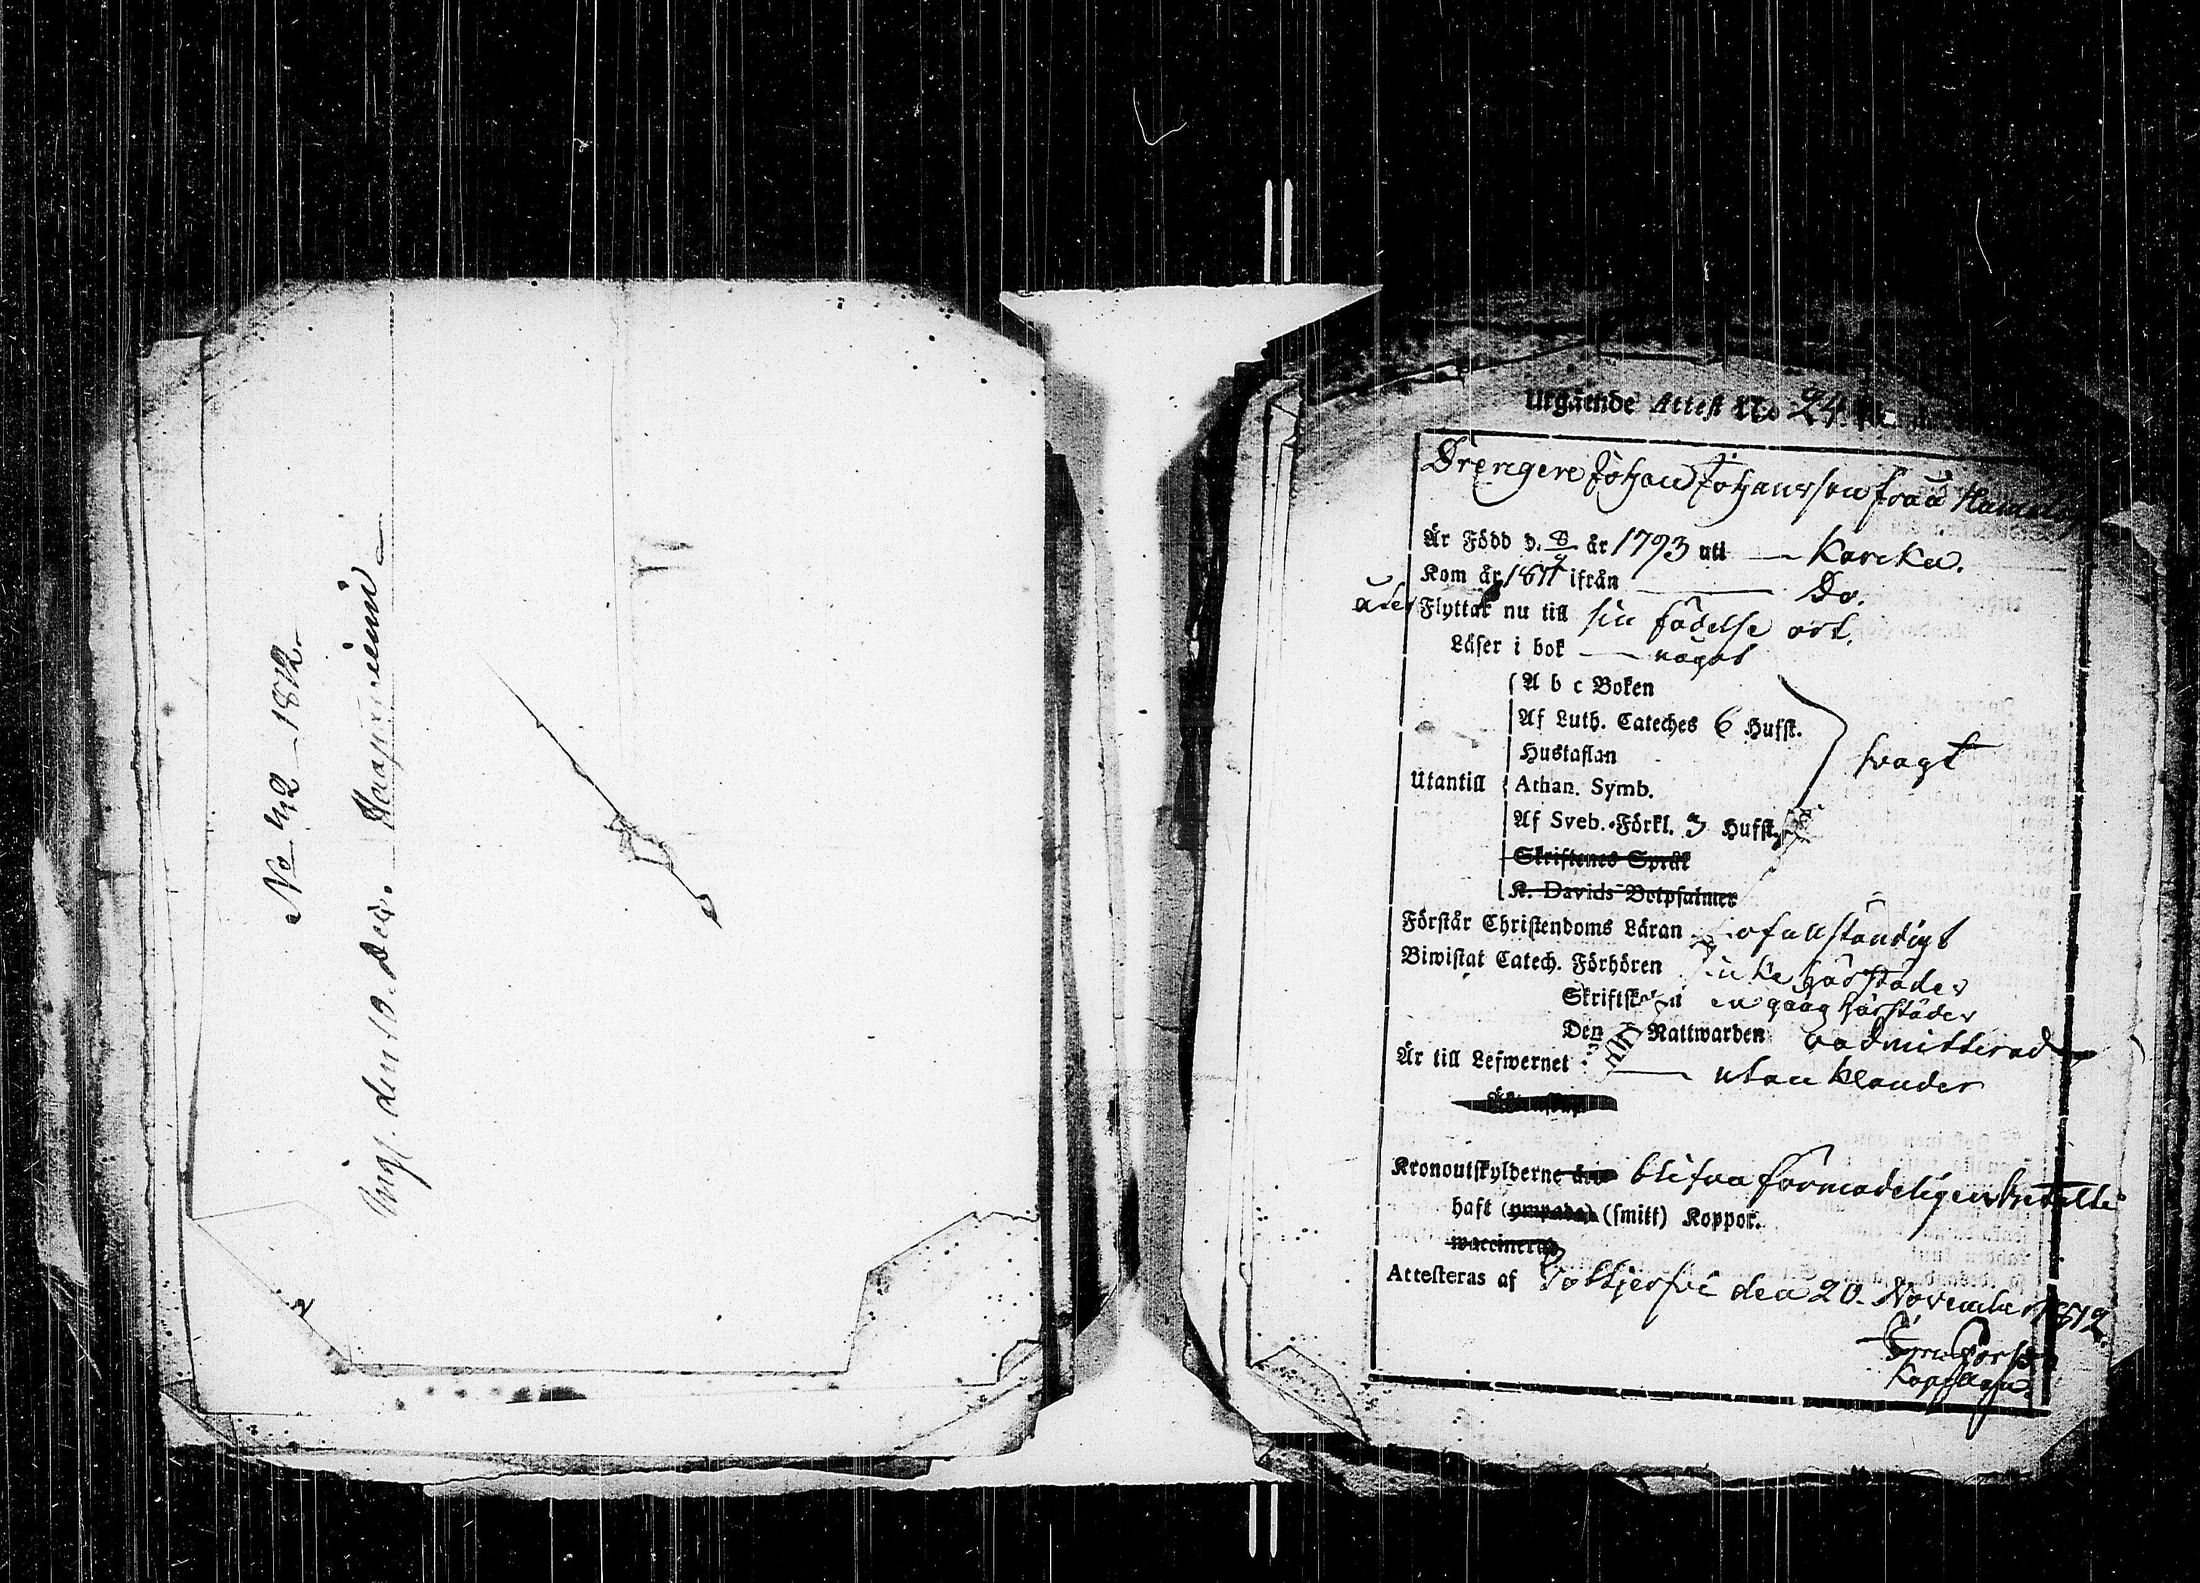 No 42 - 1812.
Ingf. den 10. Dec. Haapaniemi
Utgående Attest No 24.
Drengen Johan Johansson från
Är Född d. 8/9 år 1793 uti — Karcku.
Kom år 1811 ifrån — Do.
åter Flyttar nu till sin födelse ort.
Läser i bok — något
A b c Boken
Af Luth. Cateches 6 Hufst.
Hustaflan
swagt
Utantill Athan. Symb.
Af Sveb. Förkl. 3 Hufst.
Skriftenes Språk
K. Davids Botpsalmer
Förstår Christendoms Läran ofullständigt
Biwistat Catech. Förhören icke härstädes
Skriftskolan en gång härstädes
Den H. Nattwarden oadmitterad
Är till Lefwernet — utan klander
Kronoutskylderne blifwa formodeligen betalte
haft (ympada) (smitt) Koppor.
waccinerad
Attesteras af den 20. November 1812.
Kapellan